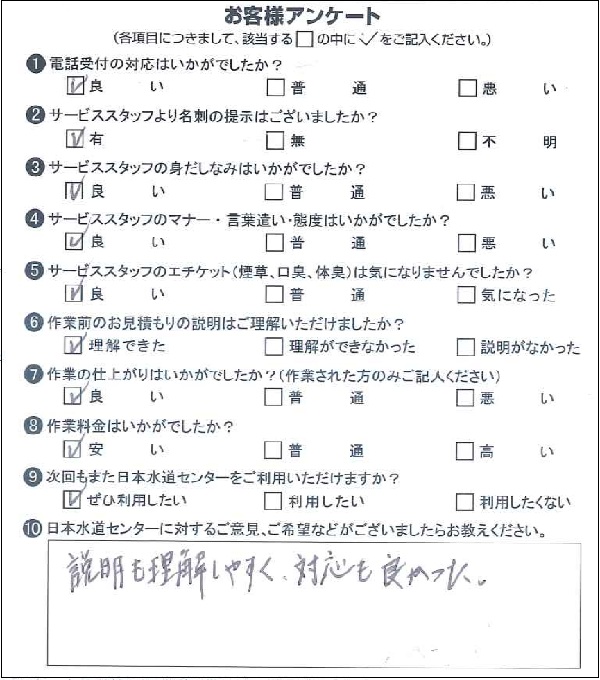 お客様アンケート
(各項目につきまして、該当する□の中に✓をご記入ください。)
❶電話受付の対応はいかがでしたか?
☑良い □普通 □悪い
❷サービススタッフより名刺の提示はございましたか?
☑有 □無 □不明
❸サービススタッフの身だしなみはいかがでしたか?
☑良い □普通 □悪い
❹サービススタッフのマナー・言葉遣い・態度はいかがでしたか?
☑良い □普通 □悪い
❺サービススタッフのエチケット(煙草、口臭、体臭)は気になりませんでしたか?
☑良い □普通 □気になった
❻作業前のお見積もりの説明はご理解いただけましたか?
☑理解できた □理解ができなかった □説明がなかった
❼作業の仕上がりはいかがでしたか?(作業された方のみご記入ください)
☑良い □普通 □悪い
❽作業料金はいかがでしたか?
☑安い □普通 □高い
❾次回もまた日本水道センターをご利用いただけますか?
☑ぜひ利用したい □利用したい □利用したくない
❿日本水道センターに対するご意見、ご希望などがございましたらお教えください。
説明も理解しやすく、対応も良かった。